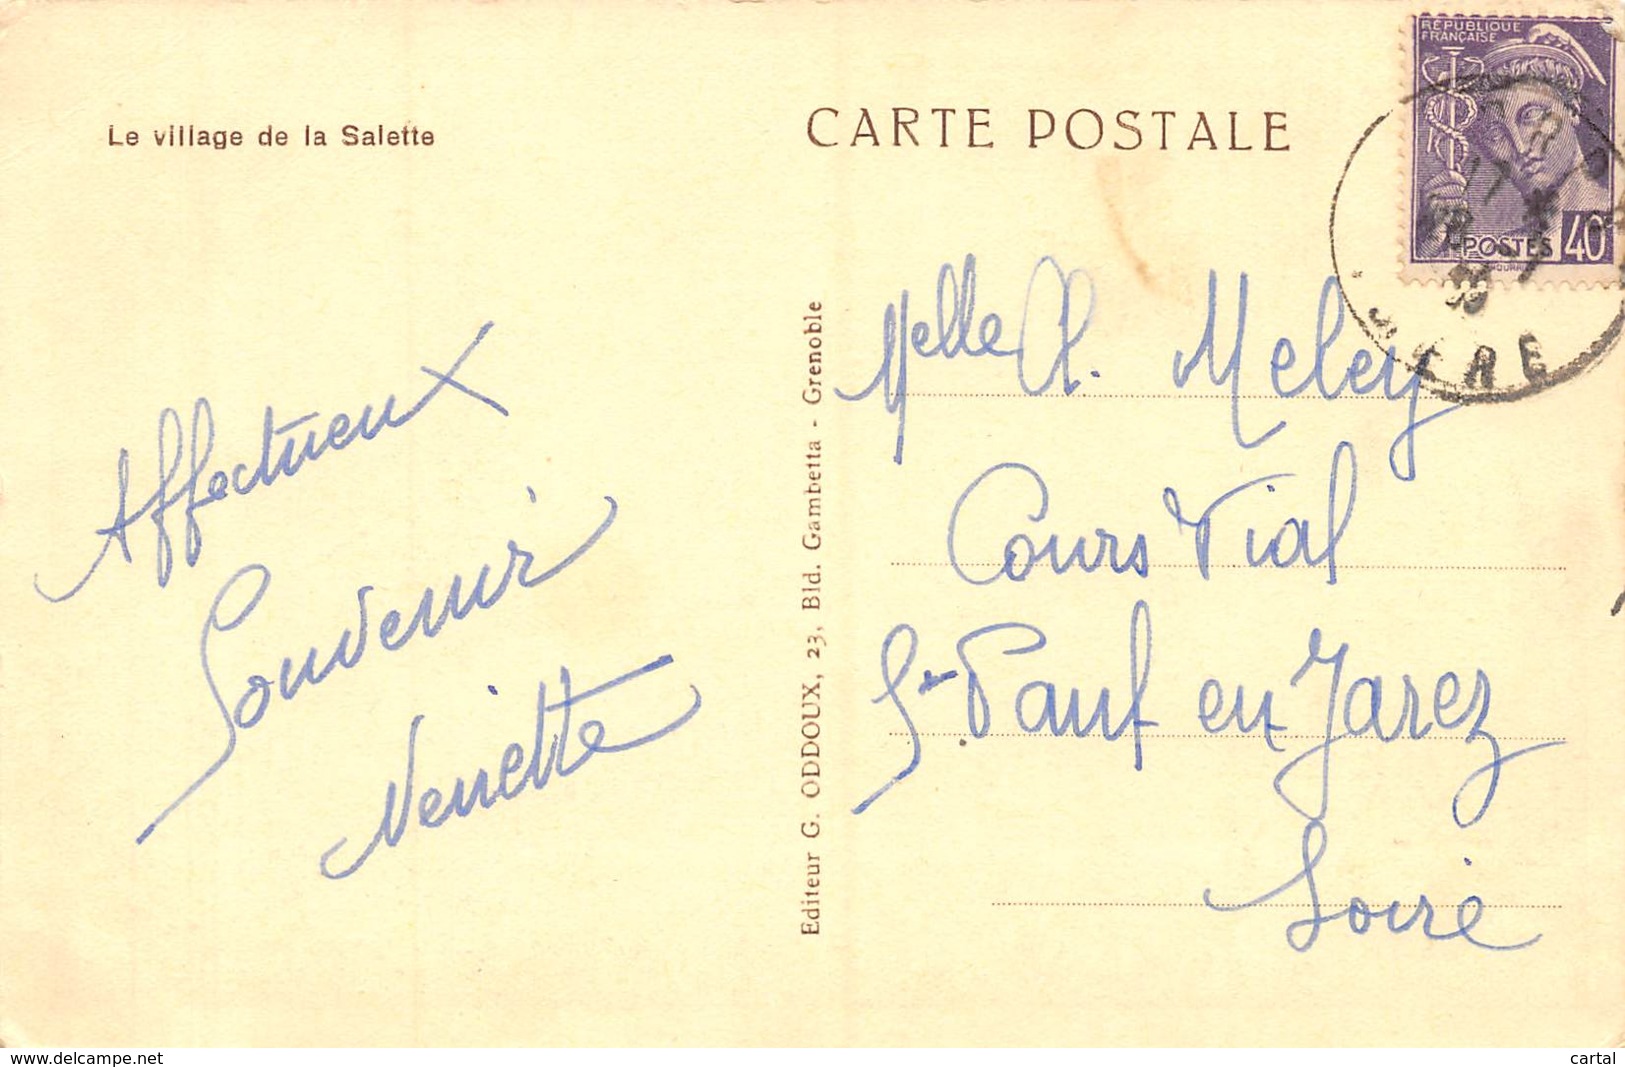 Le village de la Salette
CARTE POSTALE
RÉPUBLIQUE
FRANÇAISE
POSTES 40
17
39
ISERE
Affectueux
Souvenir
Nenette
Editeur G. ODDOUX, 23, Bld. Gambetta - Grenoble
Melle A. Meley
Cours Vial
St Paul en Jarez
Loire
www.delcampe.net
cartal